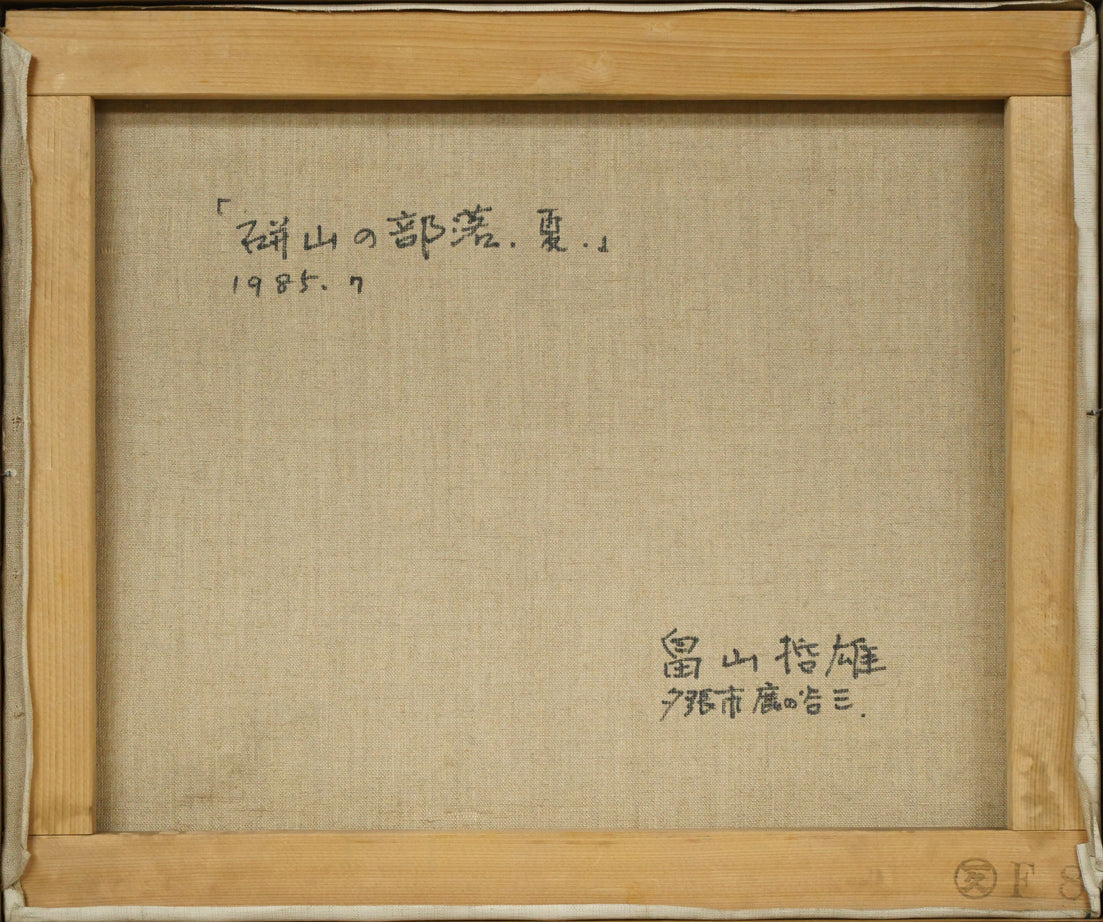 「硑山の部落.夏.」
1985.7
畠山哲雄
夕張市鹿の谷三.
F8